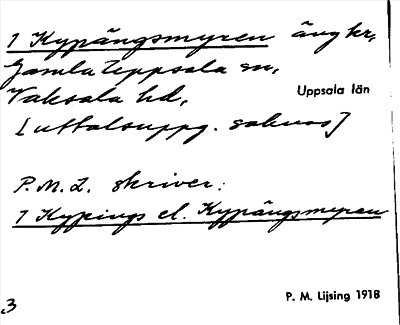 1 Kypångsmyren äng kr,
Gamla Uppsala sn,
Vaksala hd,
Uppsala län
[uttalsuppg. saknas]
P.M.L. skriver:
1 Kypings el. Kypångsmyren
3
P. M. Lijsing 1918